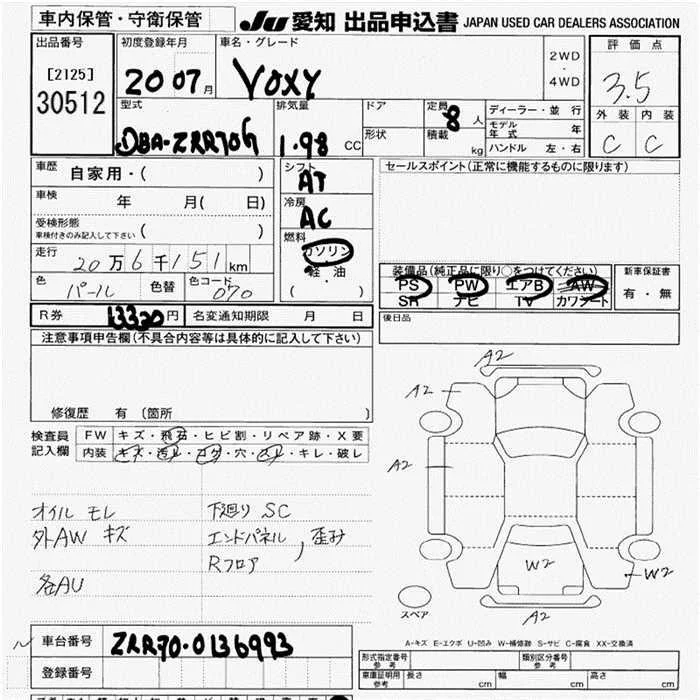 車内保管・守衛保管
JU 愛知 出品申込書 JAPAN USED CAR DEALERS ASSOCIATION
出品番号
[2125]
30512
初度登録年月
2007月
車名・グレード
VOXY
2WD
・
4WD
評価点
3.5
外装 内装
C C
型式
DBA-ZRR70G
排気量
1.98 CC
ドア
形状
定員
8 人
積載 kg
ディーラー・並行
モデル年式 年
ハンドル 左・右
車歴 自家用・( )
車検 年 月( 日)
受検形態
車検付きのみ記入して下さい ( )
走行 20万6千151km
色 パール 色替 色コード 070
シフト
AT
冷房
AC
燃料
ガソリン
軽・油
( )
セールスポイント(正常に機能するものに限ります)
装備品(純正品に限り○をつけてください)
PS PW エアB AW
SR ナビ TV カワシート
新車保証書
有・無
R券 13320円 名変通知期限 月 日
後日品
注意事項申告欄(不具合内容等は具体的に記入して下さい)
修復歴 有 (箇所 )
検査員
記入欄
FW キズ・飛石・ヒビ割・リペア跡・X要
内装 キズ・汚れ・コゲ・穴・スレ・キレ・破レ
オイル モレ
外AW キズ
各AU
下廻り SC
エンドパネル
Rフロア
, 歪み
A2
A2
A2
W2
W2
A2
スペア
A-キズ E-エクボ U-凹み W-補修跡 S-サビ C-腐食 XX-交換済
車台番号 ZRR70-0136993
登録番号
形式指定番号
参考
類別区分番号
参考
車庫証明用
参考
長さ cm
幅 cm
高さ cm